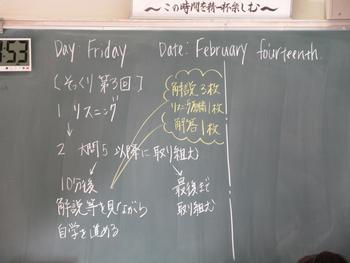 〜この時間を精一杯楽しむ〜
:53
Day: Friday Date: February fourteenth.
[そっくり 第3回]
1 リスニング
↓
2 大問5 以降に取り組む
10分後
解説等を見ながら
自学を進める
最後まで
取り組む
解説 3枚
解答 1枚